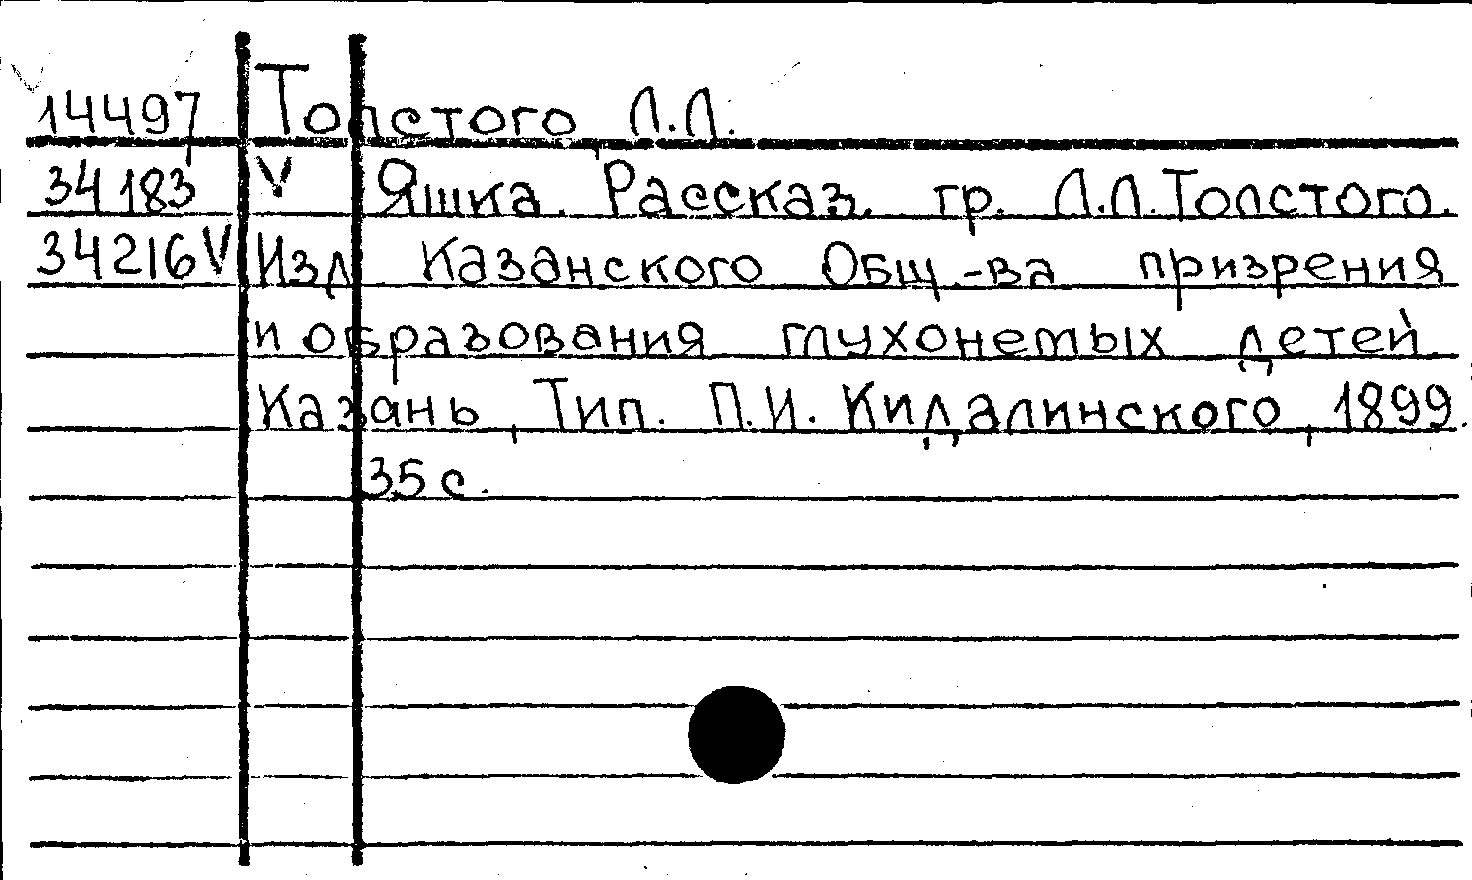 14497 Толстого Л.Л.
34183 V Яшка. Рассказ. гр. Л.Л.Толстого.
34216 V Изд Казанского Общ.-ва призрения
и образования глухонемых детей.
Казань, Тип. П.И. Кидалинского, 1899.
35 с.